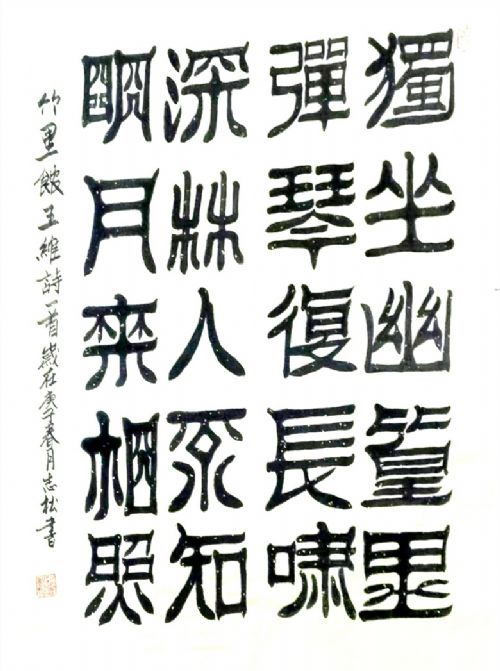 獨坐幽篁里
彈琴復長嘯
深林人不知
明月來相照
竹里館王維詩一首歲在庚子春月志松書